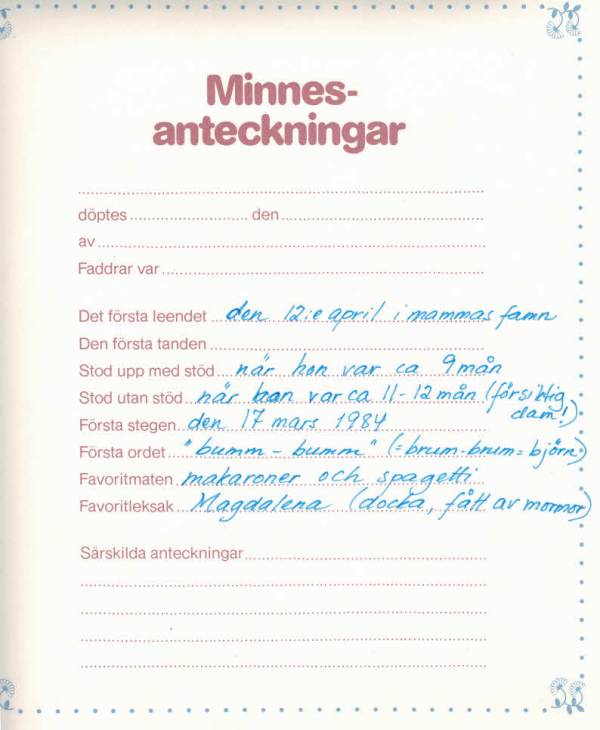 Minnes-
anteckningar
döptes den
av
Faddrar var
Det första leendet den 12:e april i mammas famn
Den första tanden
Stod upp med stöd när hon var ca 9 mån
Stod utan stöd när hon var ca 11-12 mån (försiktig
dam!)
Första stegen den 17 mars 1984
Första ordet "bumm - bumm" (=brum-brum=björn)
Favoritmaten makaroner och spagetti
Favoritleksak Magdalena (docka, fått av mormor)
Särskilda anteckningar